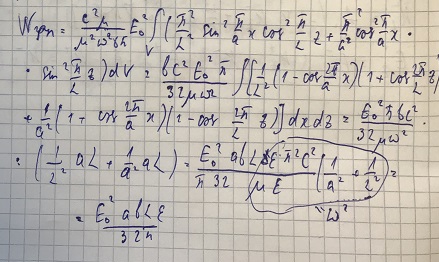 W_урп = \frac{c^2 μ}{μ^2 ω^2 8π} E_0^2 ∫_V ( \frac{π^2}{L^2} sin^2 \frac{π}{a} x cos^2 \frac{π}{L} z + \frac{π^2}{a^2} cos^2 \frac{π}{a} x ·
· sin^2 \frac{π}{L} z ) dV = \frac{b c^2 E_0^2 π}{32 μ ω^2} ∫ [ \frac{1}{L^2} (1 - cos \frac{2π}{a} x)(1 + cos \frac{2π}{L} z)
+ \frac{1}{a^2} (1 + cos \frac{2π}{a} x)(1 - cos \frac{2π}{L} z) ] dx dz = \frac{E_0^2 π b c^2}{32 μ ω^2} ·
· ( \frac{1}{L^2} aL + \frac{1}{a^2} aL ) = \frac{E_0^2 abL ε π^2 c^2}{π 32 μ ε} ( \frac{1}{a^2} + \frac{1}{L^2} ) =
ω^2
= \frac{E_0^2 abL ε}{32 π}